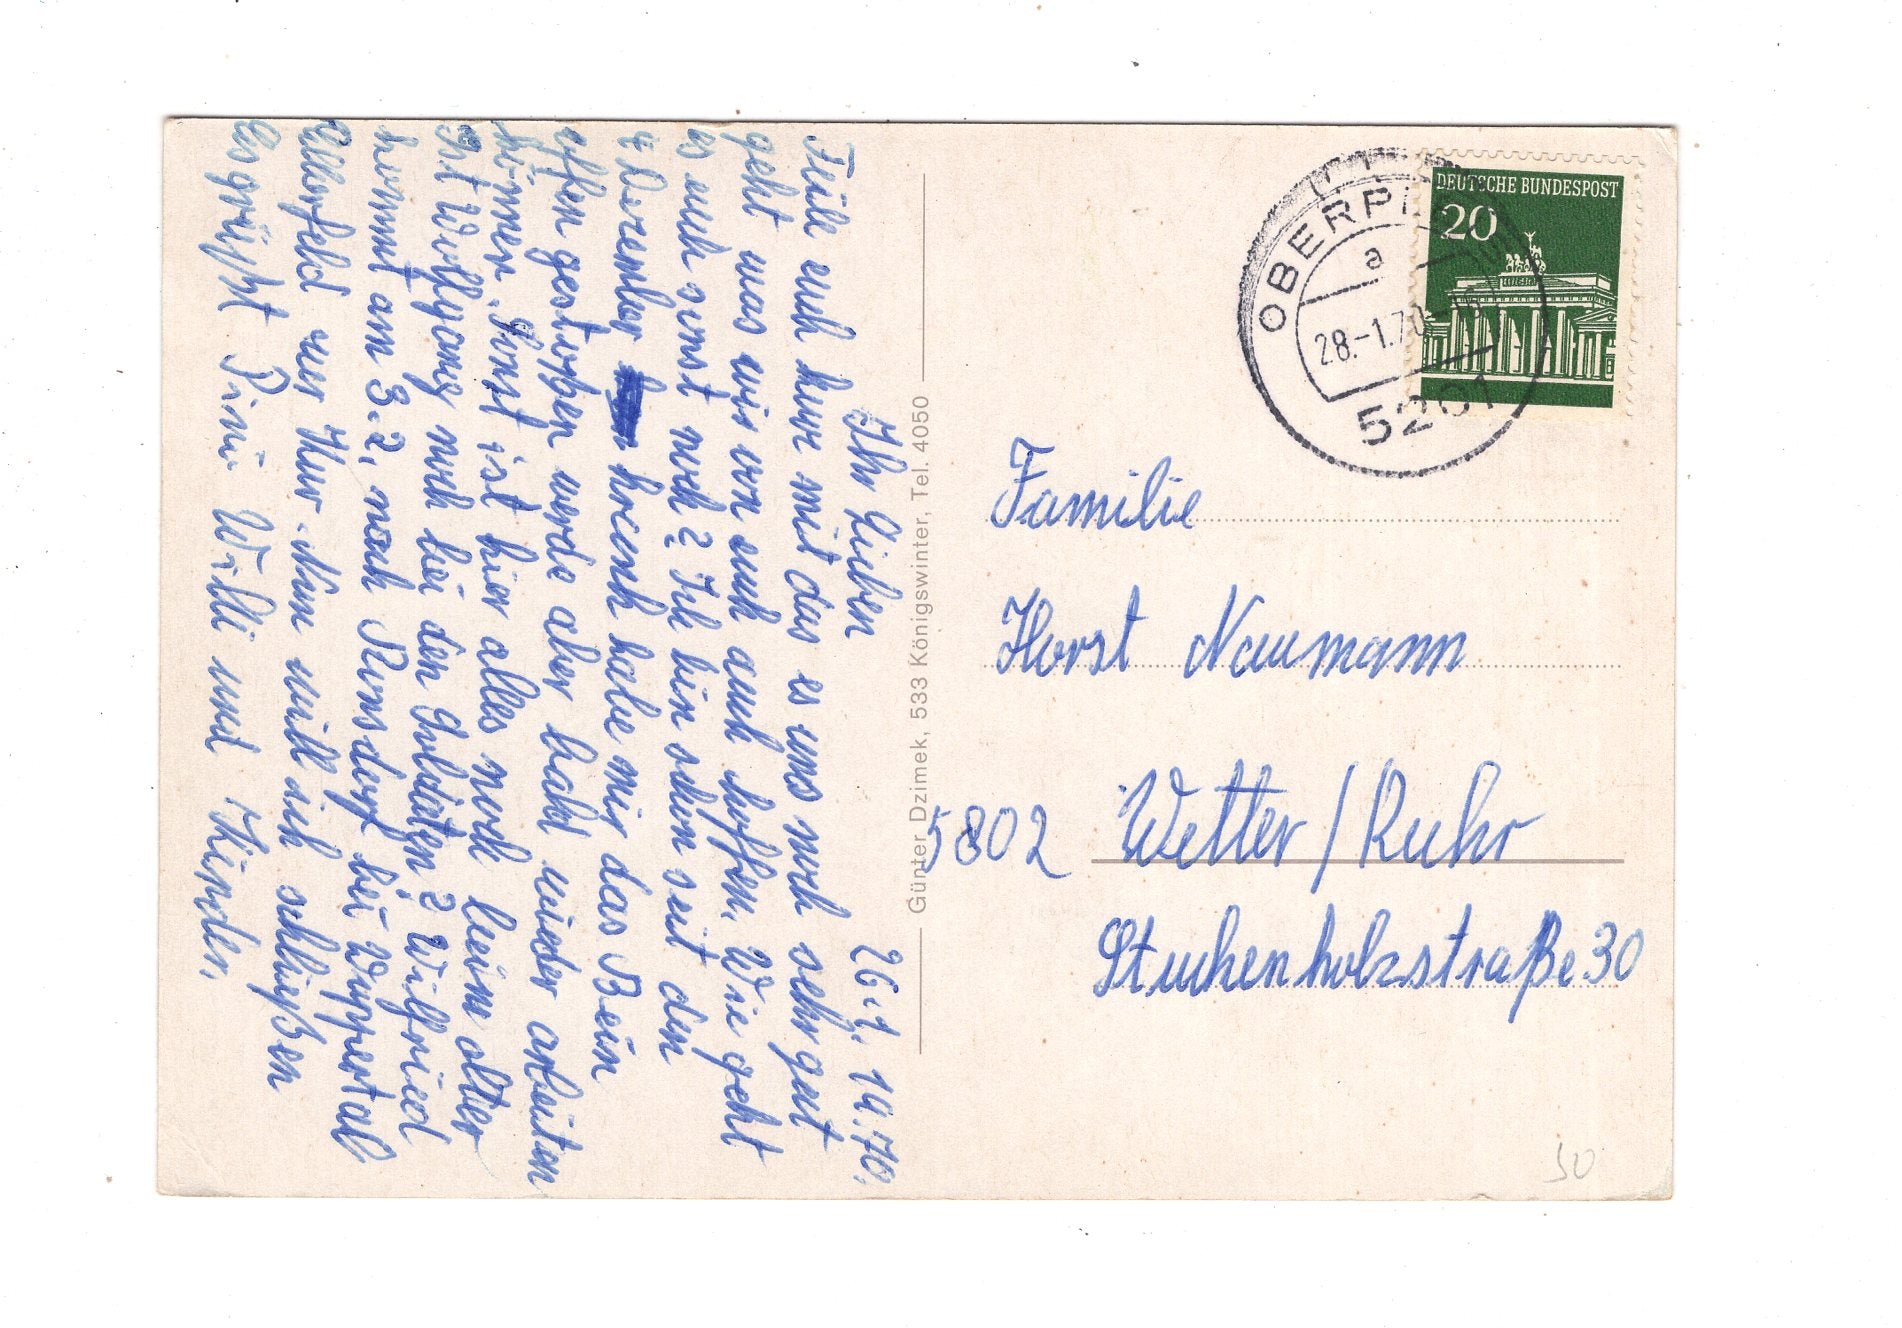 26.1.1970.
Ihr Lieben
Teile euch kurz mit das es uns noch sehr gut
geht was wir von euch auch hoffen. Wie geht
es euch sonst noch? Ich bin schon seit den
4 Dezember krank habe mir das Bein
offen gestoßen werde aber bald wieder arbeiten
können. Sonst ist hier alles noch beim alten
Ist Wolfgang noch bei den Soldaten? Wilfried
kommt am 3.2, nach Ronsdorf bei Wuppertal
Elberfeld zur Kur. Nun will ich schließen
Es grüßt Willi und Kinder.
Günter Dzimek, 533 Königswinter, Tel. 4050
DEUTSCHE BUNDESPOST
20
a
28.-1.70-
5201
Familie
Horst Naumann
5802 Wetter/Ruhr
Stuckenholzstraße 30
50